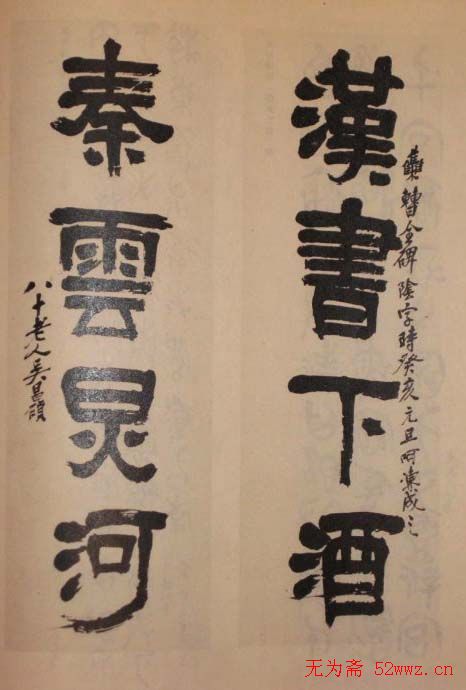 集曹全碑陰字時癸亥元旦呵凍成之
漢書下酒
秦雲炅河
八十老人吳昌碩
无为斋 52wwz.cn